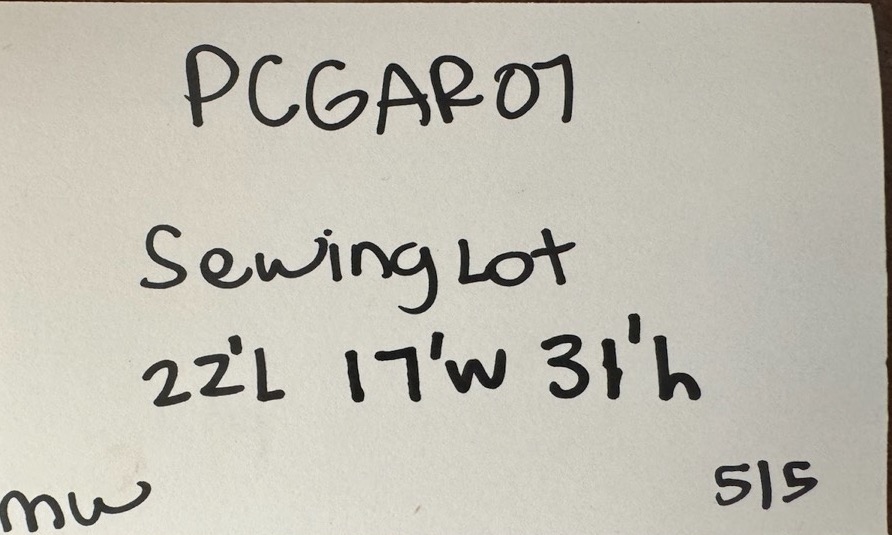 PCGAR07
Sewing Lot
22'L 17'W 31'h
mw 5/5